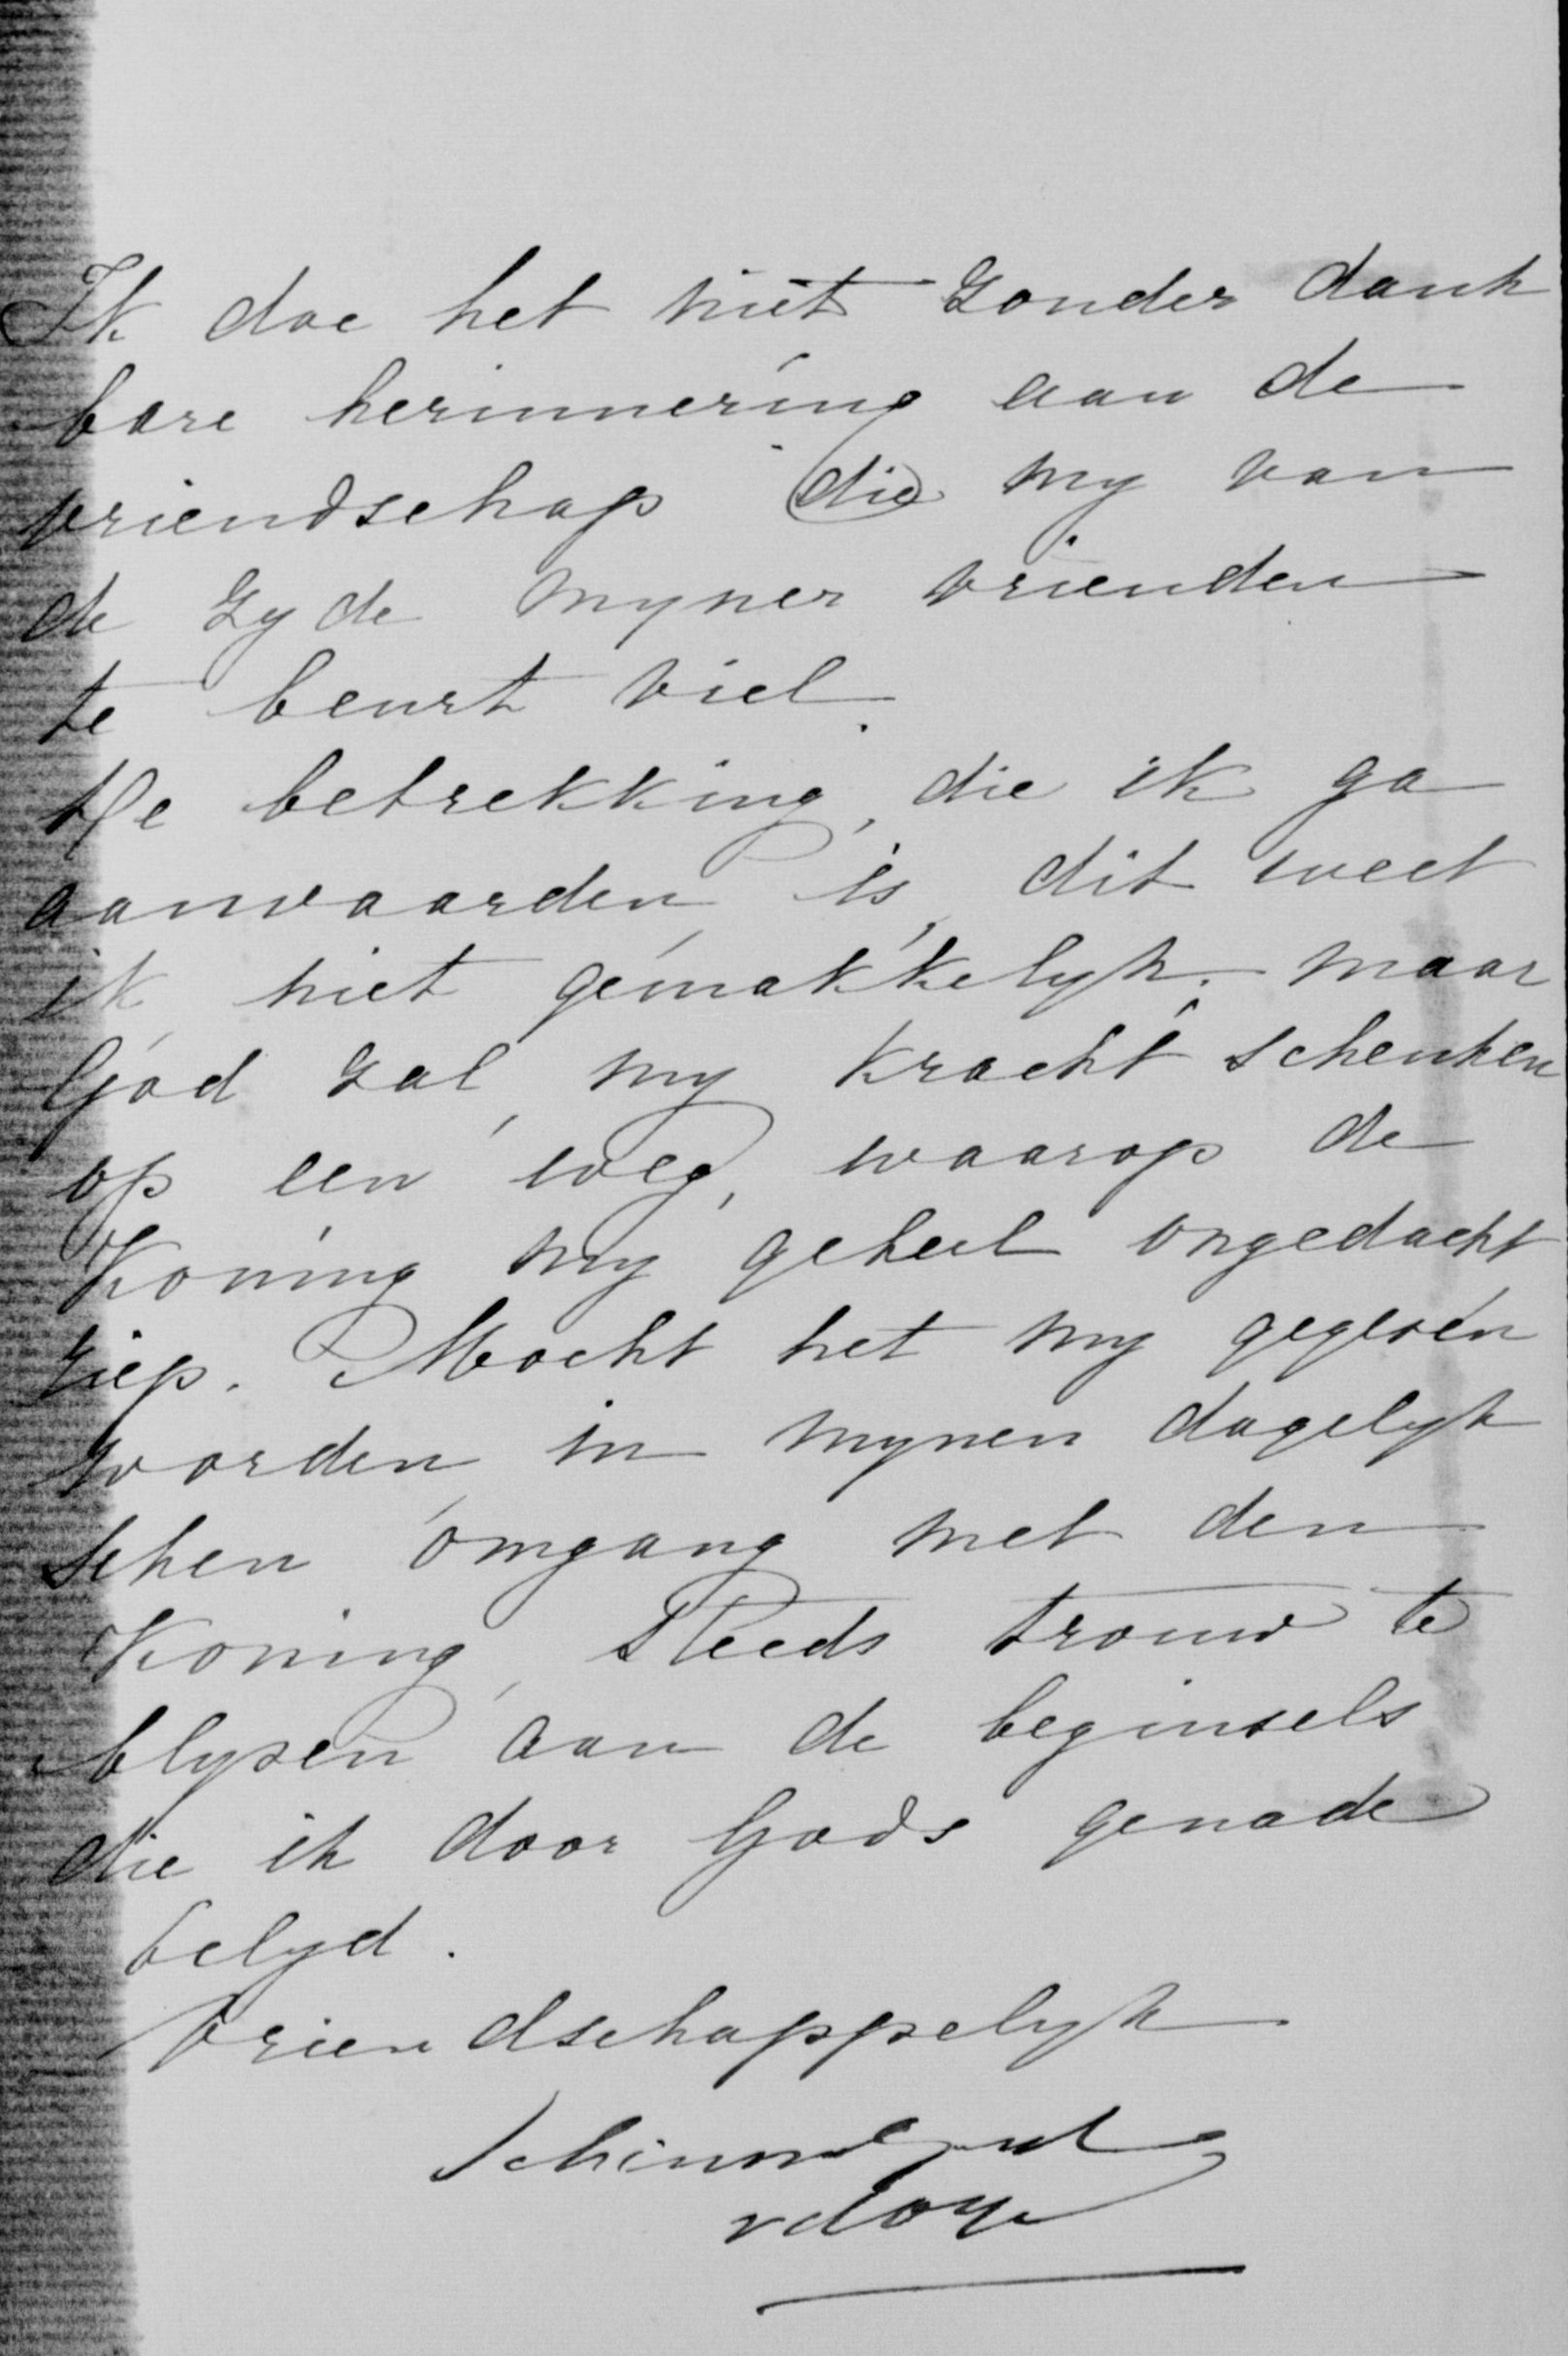 Ik doe het niet zonder dank
bare herinnering aan de
vriendschap die my van
de zyde myner vrienden
te beurt viel.
De betrekking, die ik ga
aanvaarden is, dit weet
ik niet gemakkelyk. maar
God zal, my kracht schenken
op een weg, waarop de
Koning my geheel ongedacht
riep. Mocht het my gegeven
worden in mynen dagelyk
schen omgang met den
Koning, steeds trouw te
blyven aan de beginsels
die ik door Gods genade
belyd.
Vriendschappelyk
Schimmelpenninck
vdOye